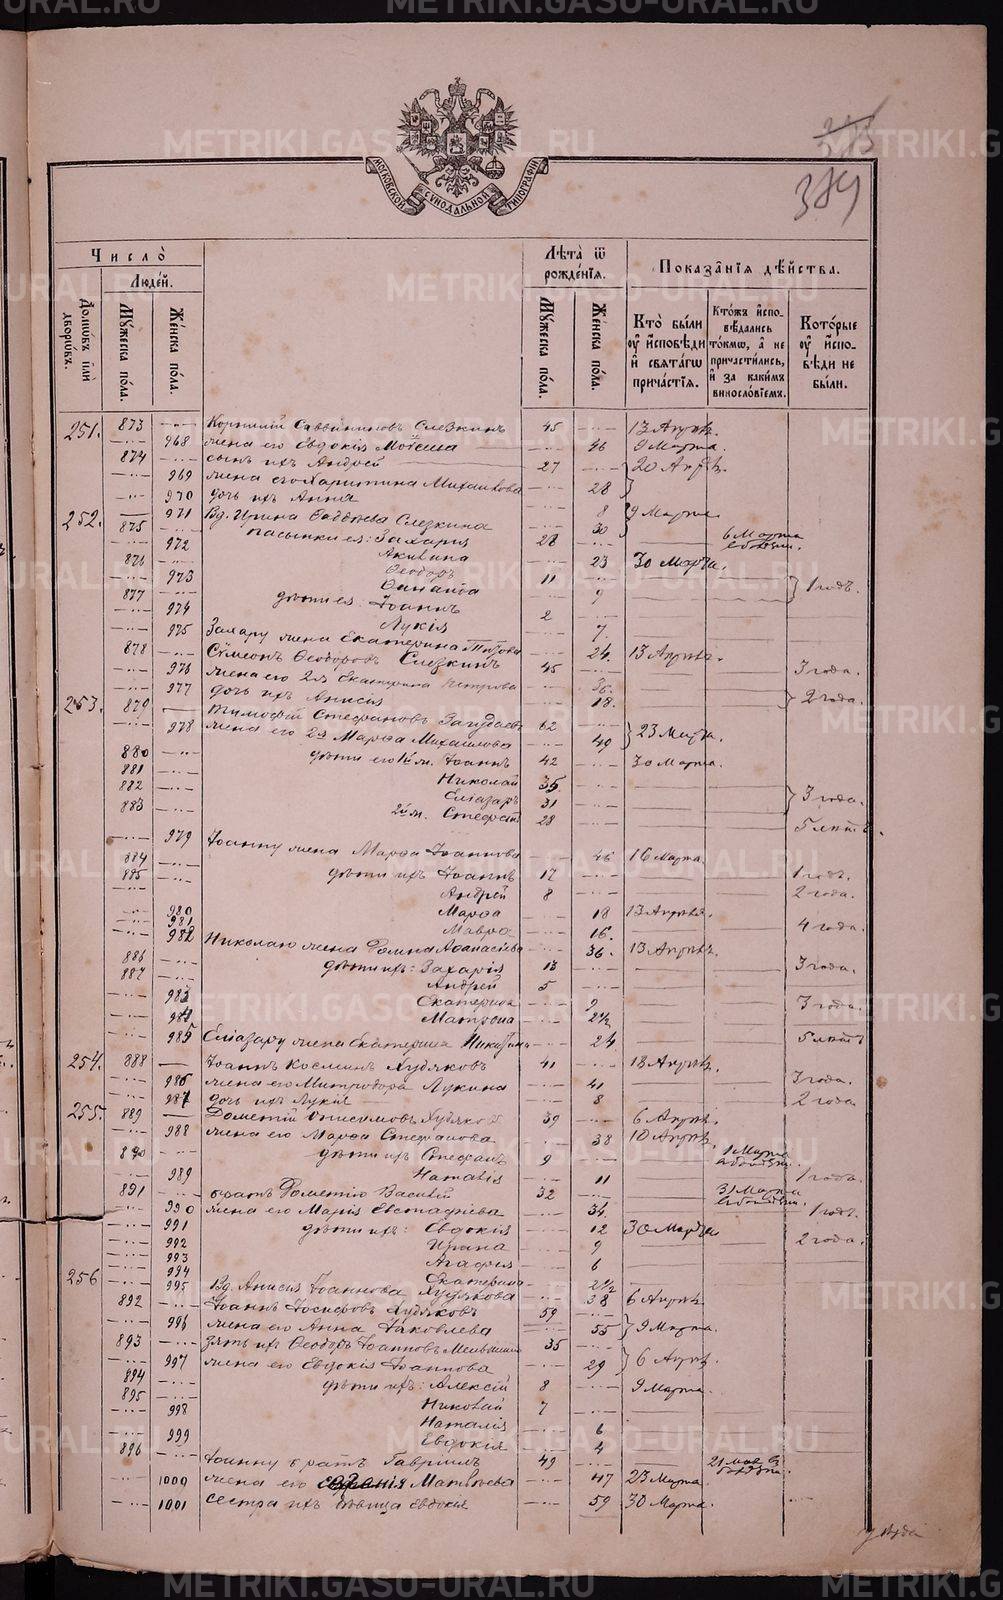 METRIKI.GASO-URAL.RU
389
МОСКОВСКОЙ СУНОДАЛЬНОЙ ТИПОГРАФІИ
Число̀
Людей.
Домѡвъ илѝ дворѡвъ.
Мꙋжеска по́ла.
Же́нска по́ла.
Лѣ̑та ѿ рожде́нїѧ.
Мꙋжеска по́ла.
Же́нска по́ла.
Показа̑нїѧ дѣйства.
Кто̀ бы́ли оу҆ и҆сповѣди и҆ свѧта́гѡ прича́стїѧ.
Кто́жъ и҆спо-вѣдались то́кмѡ, а҆ не причасти́лись, и҆ за каки́мъ винослѡвїемъ.
Кото́рые оу҆ и҆спо-вѣди не бы́ли.
251. 873 Корнилій Саввиновъ Слезкинъ 45 13 Апрѣл.
968 жена его Евдокія Моѵсеева 46 9 Марта.
874 сынъ ихъ Андрей 27 20 Апрѣ.
969 жена его Харитина Михаилова 28
970 дочь ихъ Анна 8 9 Марта
252. 971 Вд. Ирина Слезкина 30
875 пасынки ея: Захарія 28 6 Марта
972 Акилина 23 30 Марта.
876 Ѳеодоръ 11 1 годъ.
973 9
877 дѣти ея: Іоаннъ 2
974 Лукія 7
975 Захару жена Екатерина Титова 24 13 Апрѣл.
878 Сѵмеонъ Ѳеодоровъ Слезкинъ 45 3 года.
976 жена его 2я Екатерина Петрова 36. 2 года.
977 дочь ихъ Анисія 18.
253. 879 Тимофей Стефановъ 62 23 Марта.
978 жена его 2я Марѳа Михаилова 49
880 дѣти его 1й ж. Іоаннъ 42 30 Марта.
881 Николай 35
882 Еліазаръ 31 3 года.
883 2й ж. Стефанъ 28 5 лѣтъ.
979 Іоанну жена Марѳа Іоаннова 46 16 Марта.
884 дѣти ихъ Іоаннъ 17 1 годъ.
885 Андрей 8 2 года.
980 Марѳа 18 13 Апрѣля.
981 Мавра 16. 4 года.
982 Николаю жена Аѳанасіева 36. 13 Апрѣл.
886 дѣти ихъ: Захарія 13 3 года.
887 Андрей 5
983 Екатерина 9 3 года.
984 Матрона 2½
985 Еліазару жена Екатерина Никитина 24 5 лѣтъ
254. 888 Іоаннъ Косминъ Худяковъ 41 18 Апрѣл.
986 жена его Митродора Лукина 41 3 года.
987 дочь ихъ Лукія 8 2 года
255. 889 Дометій Онисимовъ Худяковъ 39 6 Апрѣл.
988 жена его Марѳа Стефанова 38 10 Апрѣл.
890 дѣти ихъ Стефанъ 9 1 Марта
989 Наталія 11 1 года.
891 братъ Дометію Василій 32 31 Марта
990 жена его Марія Евстафіева 34. 1 годъ.
991 дѣти ихъ: Евдокія 12 30 Марта
992 Ирина 9 2 года.
993 Агафія 6
994 Екатерина 2½
256 995 Вд. Анисія Іоаннова Худякова 38 6 Апрѣл.
892 Іоаннъ Іосифовъ Худяковъ 59
996 жена его Анна Яковлева 55 9 Марта.
893 зять ихъ Ѳеодоръ Іоанновъ 35
997 жена его Евдокія Іоаннова 29 6 Апрѣл.
894 дѣти ихъ: Алексій 8 9 Марта.
895 Николай 7
998 Наталія 6
999 Евдокія 4
896 Іоанну братъ Гавріилъ 49 21 Мая
1000 жена его Матвѣева 47 23 Марта.
1001 сестра ихъ дѣвица Евдокія 59 30 Марта.